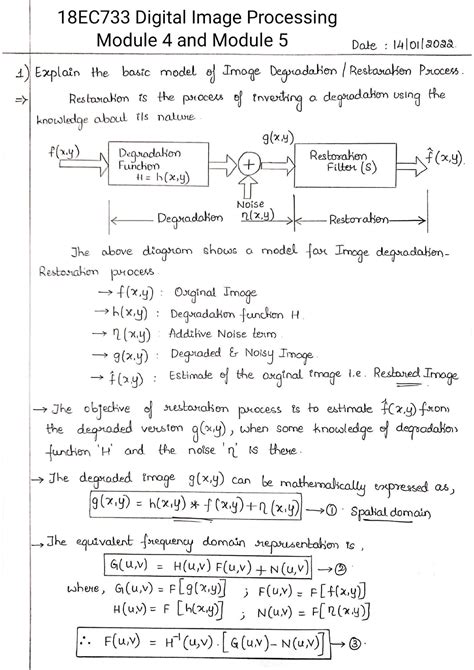 18EC733 Digital Image Processing
Module 4 and Module 5
Date : 14/01/2022
1) Explain the basic model of Image Degradation / Restoration Process.
⇒ Restoration is the process of inverting a degradation using the
knowledge about its nature.
f(x,y)
Degradation
Function
H = h(x,y)
+
g(x,y)
Restoration
Filter (s)
f̂(x,y)
Noise
η(x,y)
Degradation
Restoration
The above diagram shows a model for Image degradation-
Restoration process
→ f(x,y) : Original Image
→ h(x,y) : Degradation function H.
→ η(x,y) : Additive Noise term.
→ g(x,y) : Degraded & Noisy Image.
→ f̂(x,y) : Estimate of the original image i.e. Restored Image
→ The objective of restoration process is to estimate f̂(x,y) from
the degraded version g(x,y), when some knowledge of degradation
function 'H' and the noise 'η' is there.
→ The degraded image g(x,y) can be mathematically expressed as,
g(x,y) = h(x,y) * f(x,y) + η(x,y) → ① Spatial domain
→ The equivalent frequency domain representation is,
G(u,v) = H(u,v) F(u,v) + N(u,v) → ②
where, G(u,v) = F[g(x,y)] ; F(u,v) = F[f(x,y)]
H(u,v) = F [h(x,y)] ; N(u,v) = F[η(x,y)]
∴ F(u,v) = H⁻¹(u,v) · [G(u,v) − N(u,v)] → ③